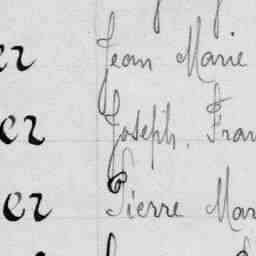 er Jean Marie
er Joseph. Fran
er Pierre Mar